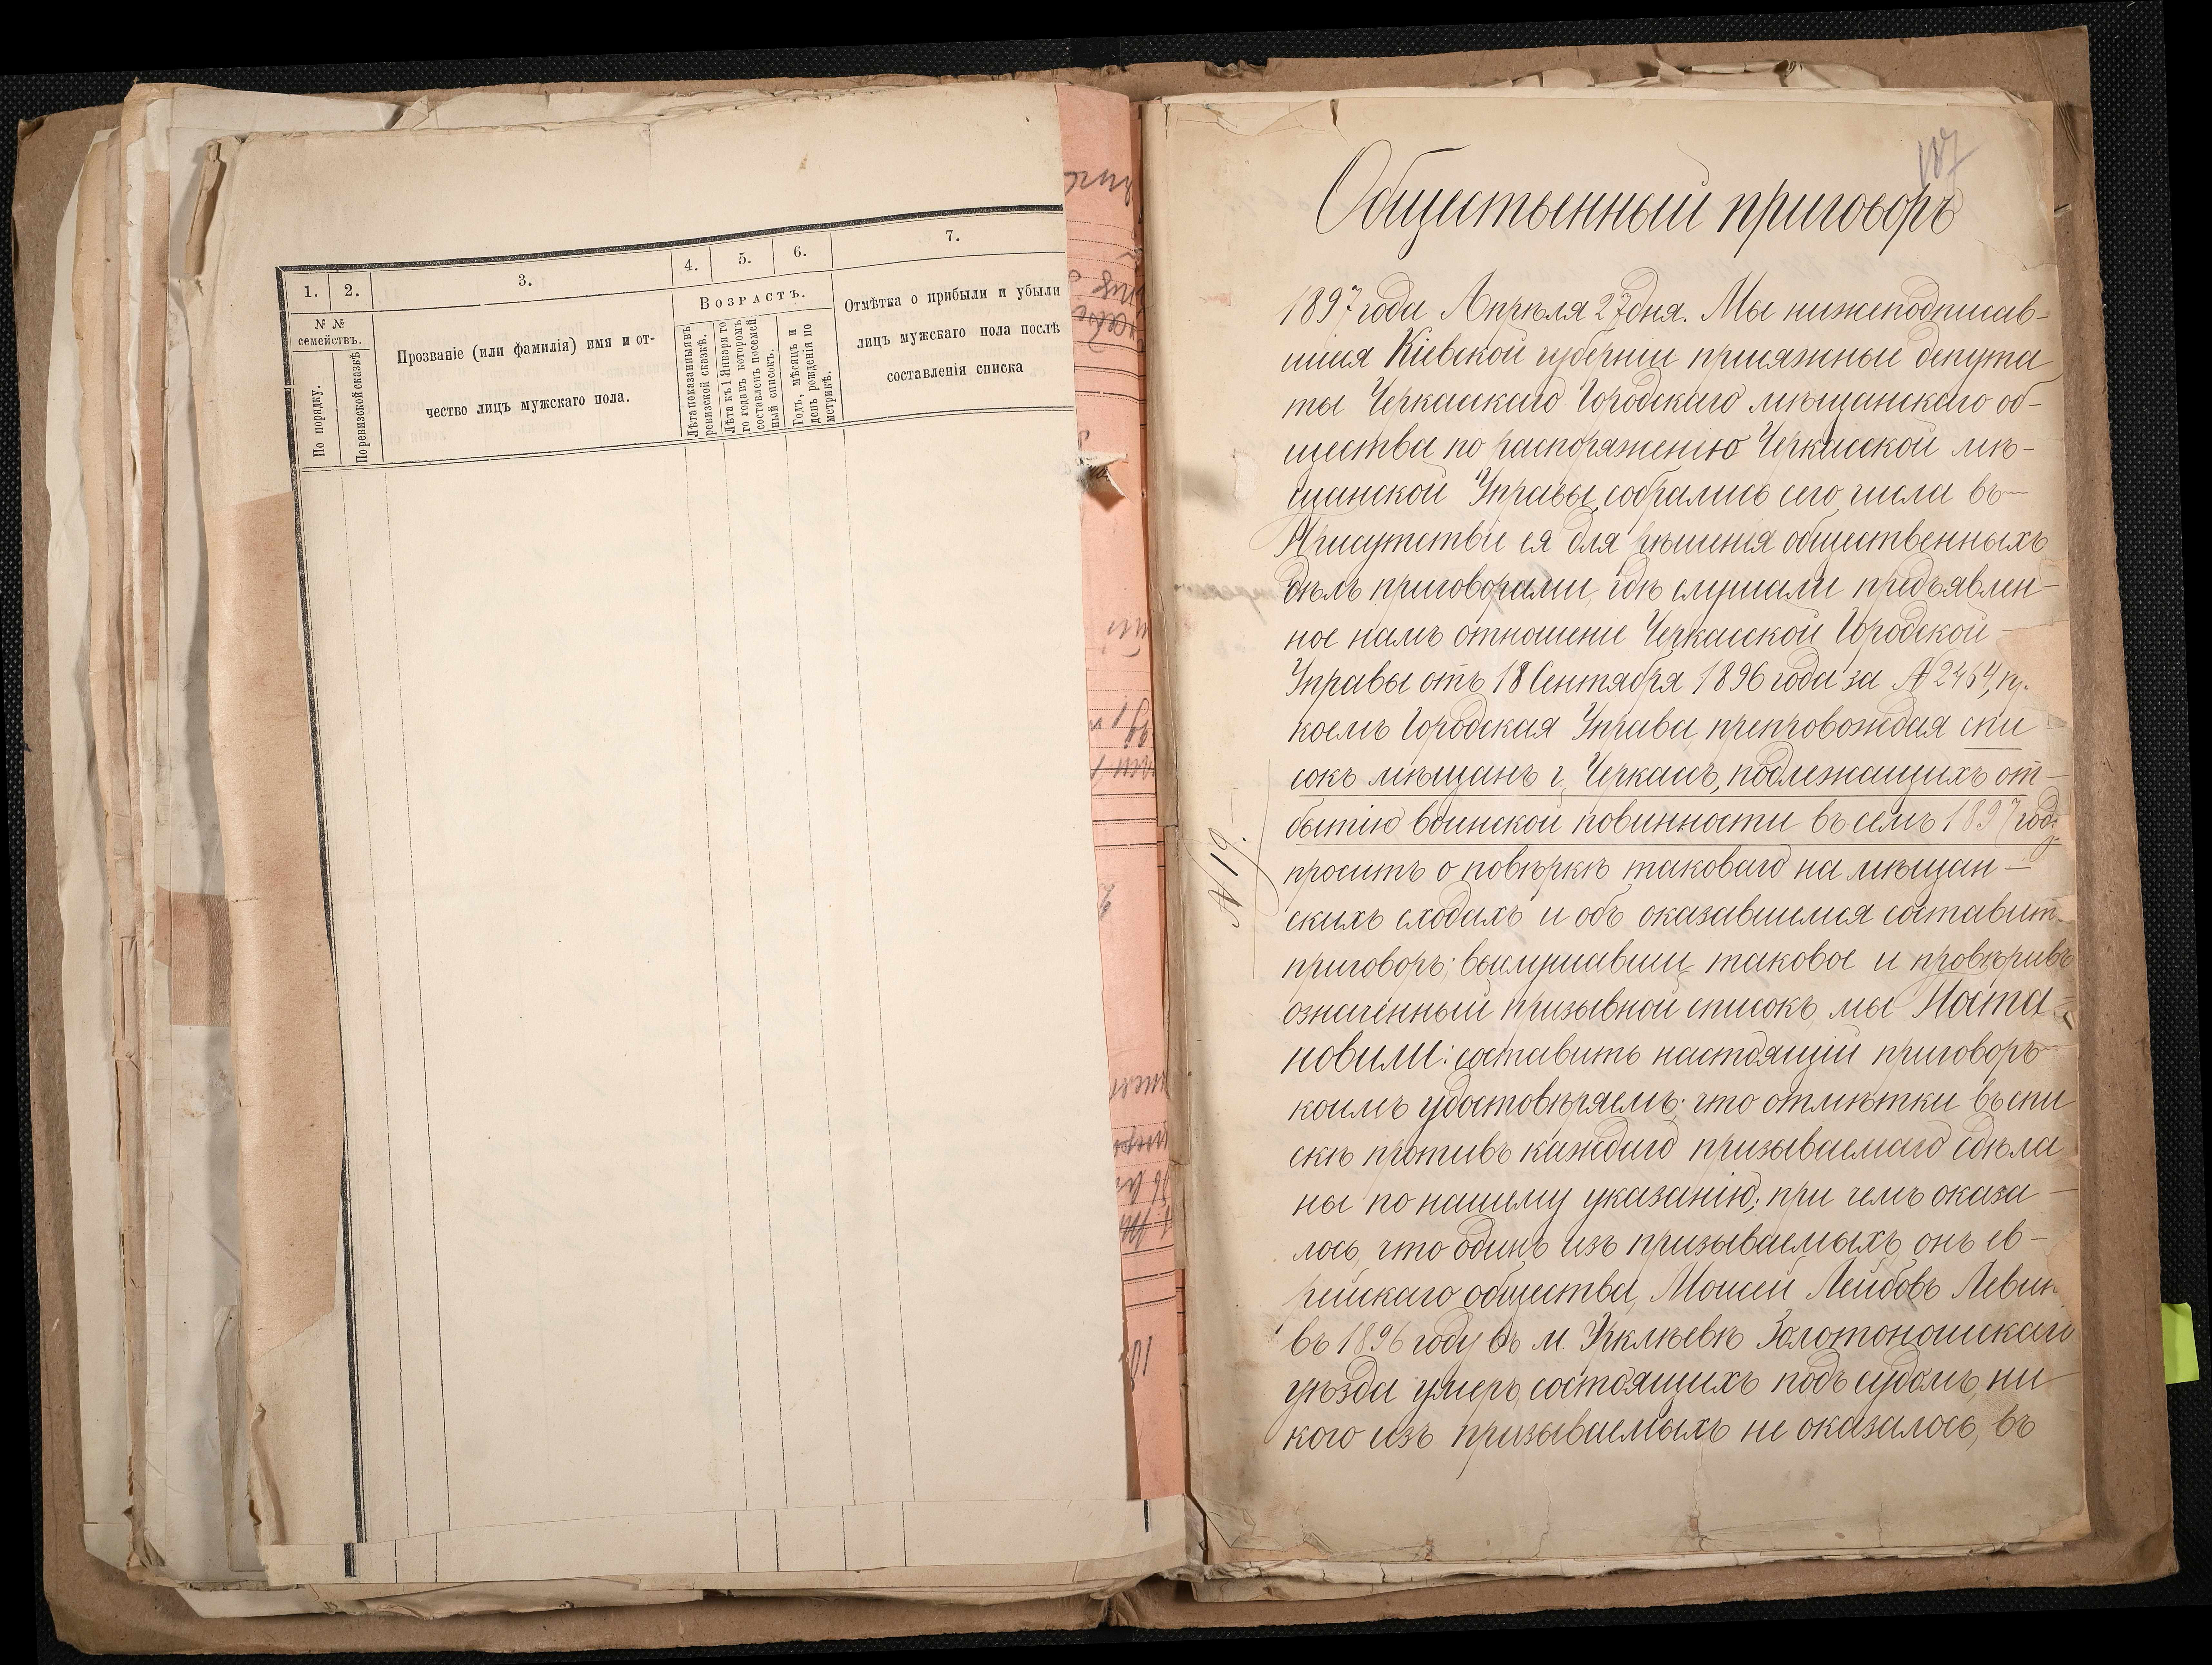 1.
2.
3.
4.
5.
6.
7.
№ №
семействъ.
По порядку.
По ревизской сказкѣ
Прозваніе (или фамилія) имя и от-
чество лицъ мужскаго пола.
Возрастъ.
Лѣта показанныя въ
ревизской сказкѣ.
Лѣта къ 1 Января то
го года въ которомъ
составленъ посемей
ный списокъ.
Годъ, мѣсяцъ и
день рожденія по
метрикѣ.
Отмѣтка о прибыли и убыли
лицъ мужскаго пола послѣ
составленія списка
107
Общественный приговоръ
1897 года Апрѣля 27 дня. Мы нижеподписав-
шіеся Кіевской губерніи присяжные депута
ты Черкасскаго Городскаго мѣщанскаго об-
щества по распоряженію Черкасской мѣ-
щанской Управы, собрались сего числа въ
Присутствіе ея для рѣшенія общественныхъ
дѣлъ приговорами, гдѣ слушали предъявлен-
ное намъ отношеніе Черкасской Городской
Управы отъ 18 Сентября 1896 года за № 2464, пр.
коемъ Городская Управа препровождая спи
сокъ мѣщанъ г. Черкассъ, подлежащихъ от-
бытію воинской повинности въ семъ 1897 году
проситъ о повѣркѣ таковаго на мѣщан-
скихъ сходахъ и объ оказавшемся составит.
приговоръ; выслушавши таковое и провѣривъ
означенный призывной списокъ, мы Поста-
новили: составить настоящій приговоръ
коимъ удостовѣряемъ: что отмѣтки въ спи
скѣ противъ каждаго призываемаго сдѣла
ны по нашему указанію; при чемъ оказа-
лось, что одинъ изъ призываемыхъ онъ ев-
рейскаго общества, Мошей Лейбовъ Левин
въ 1896 году въ м. Ирклѣевѣ Золотоношскаго
уѣзда умеръ, состоящихъ подъ судомъ, ни
кого изъ призываемыхъ не оказалось, въ
№ 19.